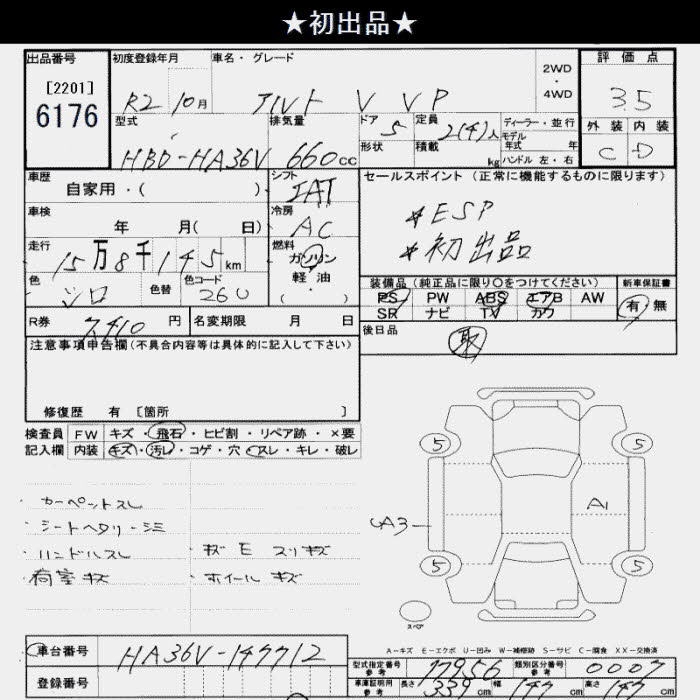 ★初出品★
出品番号 初度登録年月 車名・グレード 2WD・4WD 評価点
[2201]
6176
R2 10月 アルト V VP 3.5
型式 排気量 ドア 5 定員 2(4)人 ディーラー・並行 外装 内装
形状 積載 kg モデル年式 年
ハンドル 左・右
HBD-HA36V 660cc C D
車歴 シフト セールスポイント（正常に機能するものに限ります）
自家用・( ) IAT
車検 冷房 *ESP
年 月( 日) AC *初出品
走行 燃料
15万8千145km ガソリン
軽油
( )
色 色替 色コード
シロ 26U
装備品（純正品に限り○をつけてください） 新車保証書
PS PW ABS エアB AW 有 無
SR ナビ TV カワ
R券 7410円 名変期限 月 日 後日品
取
注意事項申告欄（不具合内容等は具体的に記入して下さい）
修復歴 有 [箇所 ]
検査員 FW キズ・飛石・ヒビ割・リペア跡・×要
記入欄 内装 キズ・汚レ・コゲ・穴・スレ・キレ・破レ
・カーペットスレ
・シートヘタリ・シミ
・ハンドルスレ ・キズ E スリキズ
・荷室キズ ・ホイールキズ
5 5
A1
A3
5 5
スペア
A－キズ E－エクボ U－凹み W－補修跡 S－サビ C－腐食 XX－交換済
車台番号 HA36V-147712
登録番号
型式指定番号 参考 17956 類別区分番号 参考 0007
車庫証明用 参考 長さ 339cm 幅 147cm 高さ 147cm